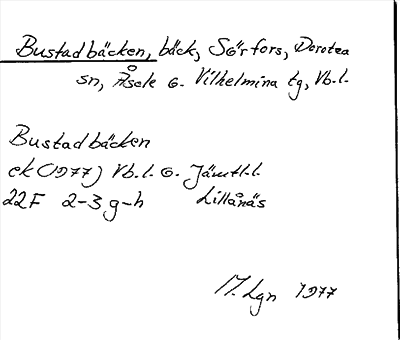 Bustadbäcken, bäck, Sörfors, Dorotea
sn, Åsele o. Vilhelmina tg, Vb.l.
Bustadbäcken
ek (1977) Vb.l. o. Jämtl.l.
22F 2-3 g-h Lillånäs
M. Lgn 1977